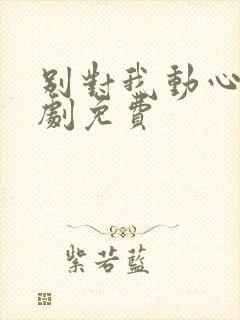 别對我動心
劇免費
紫若藍